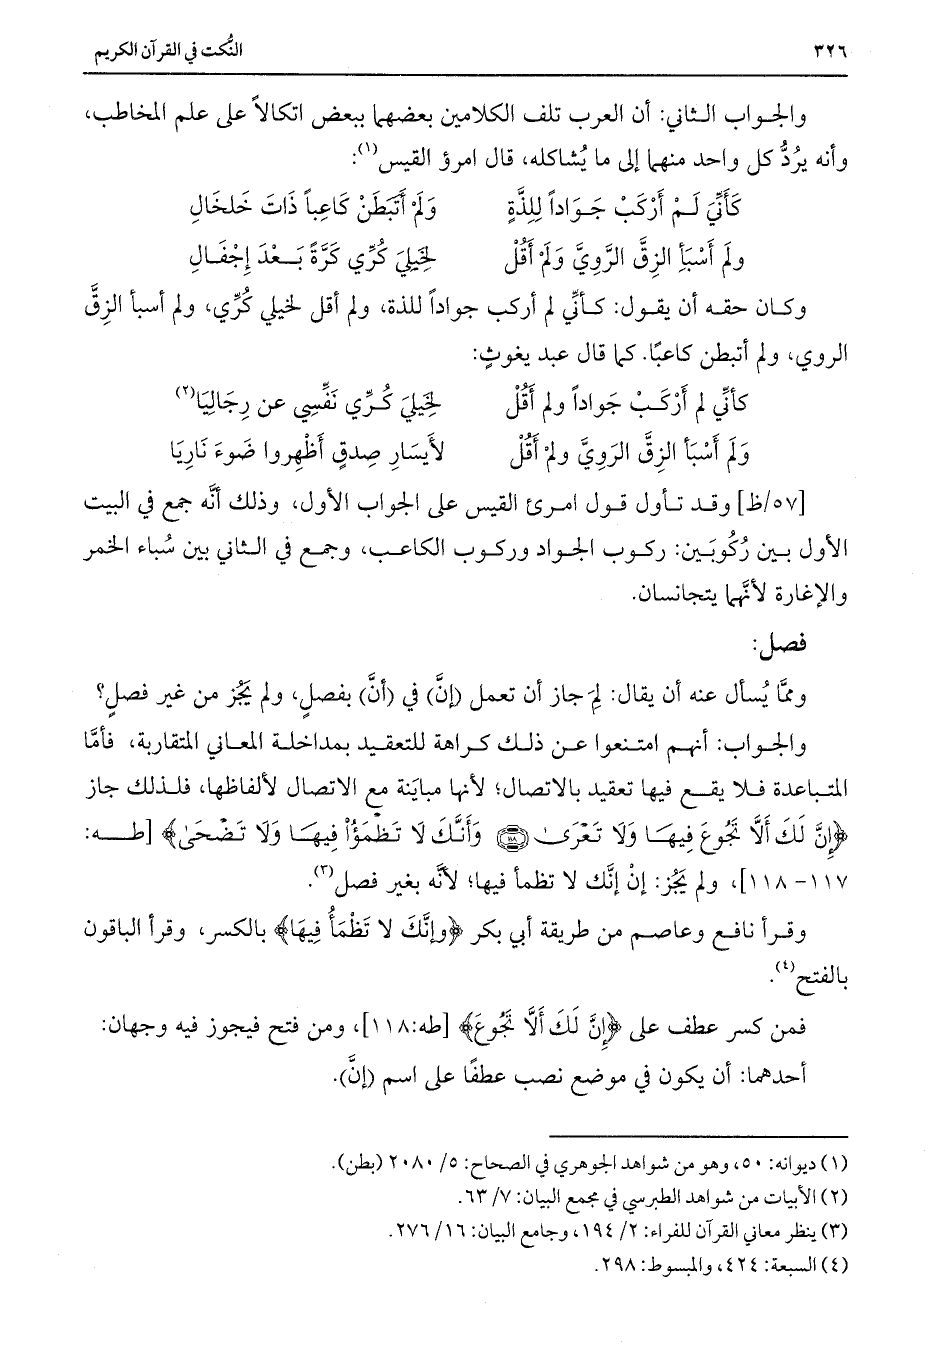 ٣٢٦ النُّكت في القرآن الكريم
والجواب الثاني: أن العرب تلف الكلامين بعضهما ببعض اتكالاً على علم المخاطب،
وأنه يرُدُّ كل واحد منهما إلى ما يُشاكله، قال امرؤ القيس(١):
كَأَنِّيَ لَمْ أَرْكَبْ جَوَاداً لِلذَّةٍ وَلَمْ أَتَبَطَّنْ كَاعِباً ذَاتَ خَلخَالِ
ولم أَسْبَأِ الزِقَّ الرَّوِيَّ وَلَمْ أَقُلْ لِخَيلِيَ كُرِّي كَرَّةً بَعْدَ إِجْفَالِ
وكان حقه أن يقول: كأنِّي لم أركب جواداً للذة، ولم أقل لخيلي كُرِّي، ولم أسبأ الزِقَّ
الروي، ولم أتبطن كاعبًا. كما قال عبد يغوثٍ:
كأنِّي لم أَرْكَبْ جَواداً ولم أَقُلْ لِخَيلِيَ كُرِّي نَفِّسِي عن رِجَالِيَا(٢)
وَلَم أَسْبَأ الزِقَّ الرَوِيَّ ولمْ أَقُلْ لأَيسَارِ صِدقٍ أَظْهِروا ضَوءَ نَارِيَا
[٥٧/ظ] وقد تأول قول امرئ القيس على الجواب الأول، وذلك أنَّه جمع في البيت
الأول بين رُكُوبَين: ركوب الجواد وركوب الكاعب، وجمع في الثاني بين سُباء الخمر
والإغارة لأنَّهما يتجانسان.
فصل:
وممَّا يُسأل عنه أن يقال: لِمَ جاز أن تعمل (إنَّ) في (أنَّ) بفصلٍ، ولم يَجُز من غير فصلٍ؟
والجواب: أنهم امتنعوا عن ذلك كراهة للتعقيد بمداخلة المعاني المتقاربة، فأمَّا
المتباعدة فلا يقع فيها تعقيد بالاتصال؛ لأنها مبايَنة مع الاتصال لألفاظها، فلذلك جاز
﴿إِنَّ لَكَ أَلَّا تَجُوعَ فِيهَا وَلَا تَعْرَىٰ ۝١١٨ وَأَنَّكَ لَا تَظْمَؤُاْ فِيهَا وَلَا تَضْحَىٰ﴾ [طه:
١١٧- ١١٨]، ولم يَجُز: إنْ إنَّك لا تظمأ فيها؛ لأنَّه بغير فصل(٣).
وقرأ نافع وعاصم من طريقة أبي بكر ﴿وإنَّكَ لا تَظْمَأُ فِيهَا﴾ بالكسر، وقرأ الباقون
بالفتح(٤).
فمن كسر عطف على ﴿إِنَّ لَكَ أَلَّا تَجُوعَ﴾ [طه:١١٨]، ومن فتح فيجوز فيه وجهان:
أحدهما: أن يكون في موضع نصب عطفًا على اسم (إنَّ).
(١) ديوانه: ٥٠، وهو من شواهد الجوهري في الصحاح: ٥/ ٢٠٨٠ (بطن).
(٢) الأبيات من شواهد الطبرسي في مجمع البيان: ٧/ ٦٣.
(٣) ينظر معاني القرآن للفراء: ٢/ ١٩٤، وجامع البيان: ١٦/ ٢٧٦.
(٤) السبعة: ٤٢٤، والمبسوط: ٢٩٨.